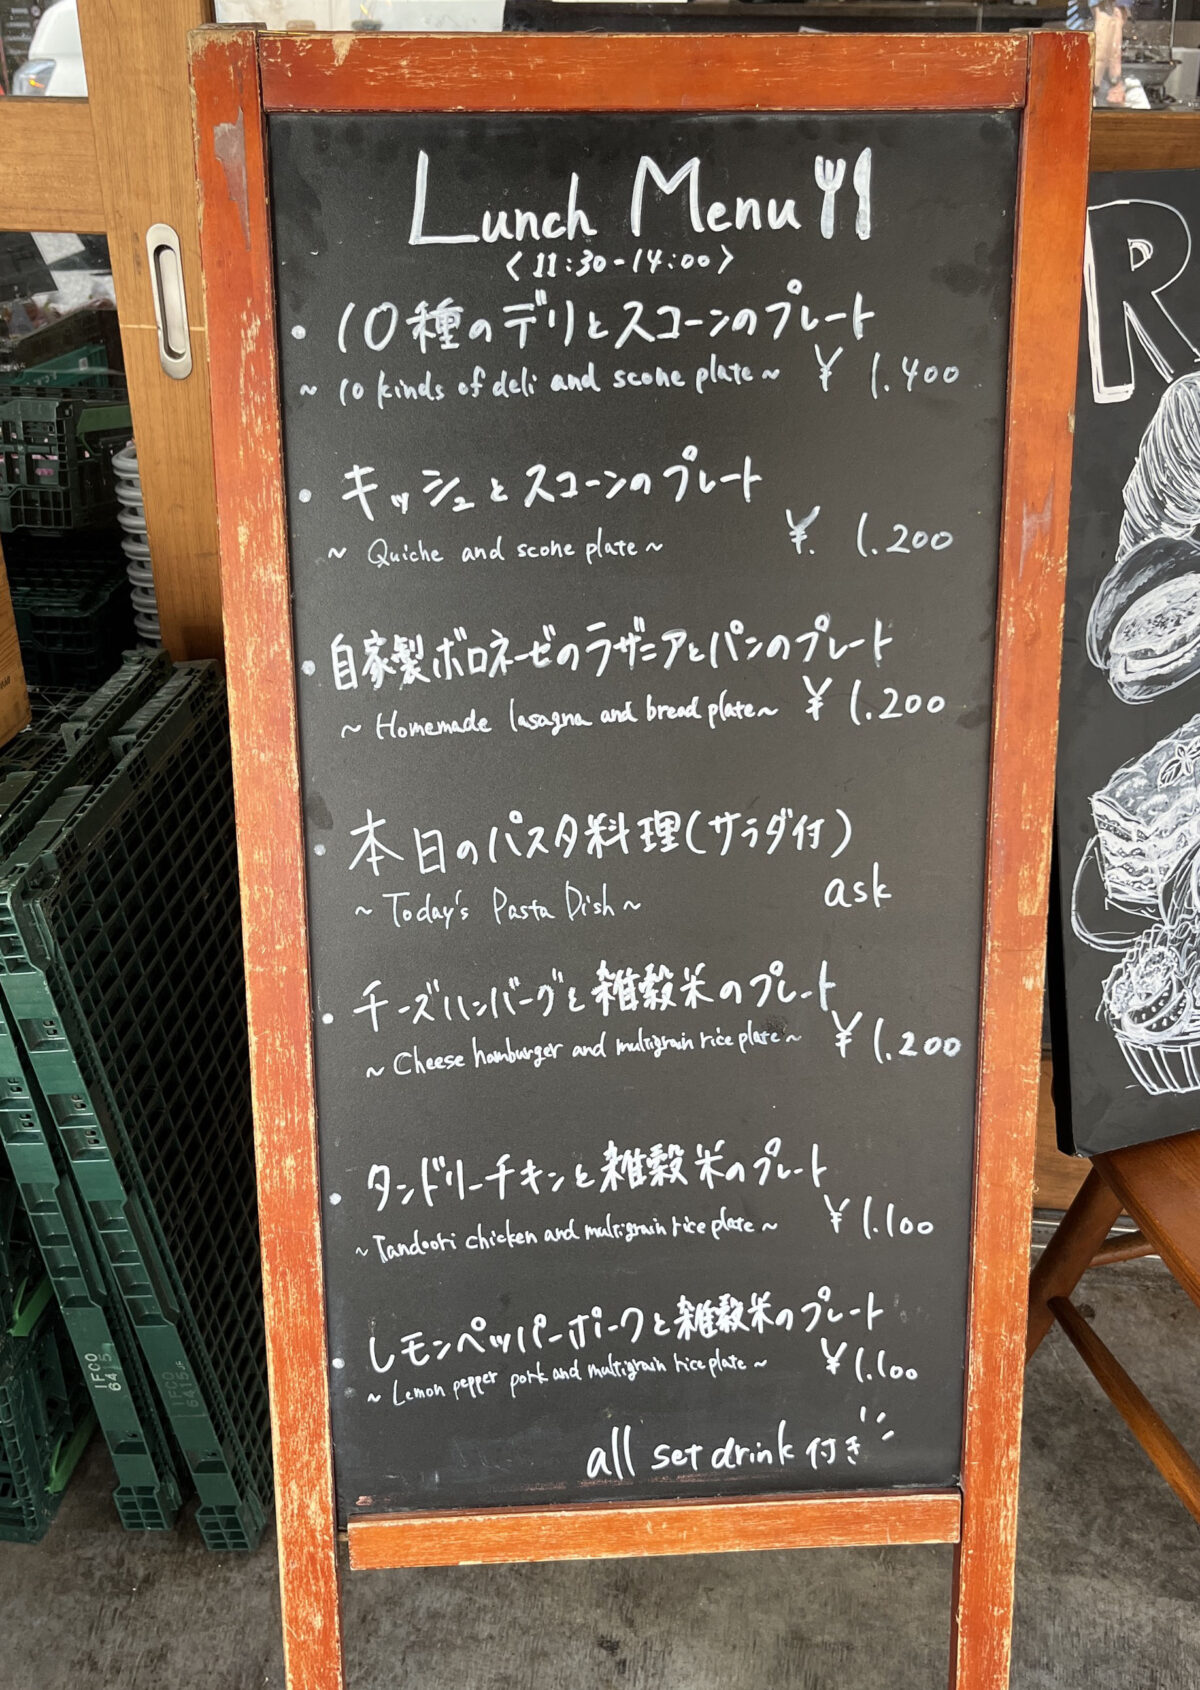 Lunch Menu
<11:30-14:00>
・10種のデリとスコーンのプレート
~10 kinds of deli and scone plate~ ¥1.400
・キッシュとスコーンのプレート
~Quiche and scone plate~ ¥.1.200
・自家製ボロネーゼのラザニアとパンのプレート
~Homemade lasagna and bread plate~ ¥1.200
・本日のパスタ料理(サラダ付)
~Today's Pasta Dish~ ask
・チーズハンバーグと雑穀米のプレート
~Cheese hamburger and multigrain rice plate~ ¥1.200
・タンドリーチキンと雑穀米のプレート
~Tandoori chicken and multigrain rice plate~ ¥1.100
・レモンペッパーポークと雑穀米のプレート
~Lemon pepper pork and multigrain rice plate~ ¥1.100
all set drink付き
R
IFCO
6415
IFCO
6415